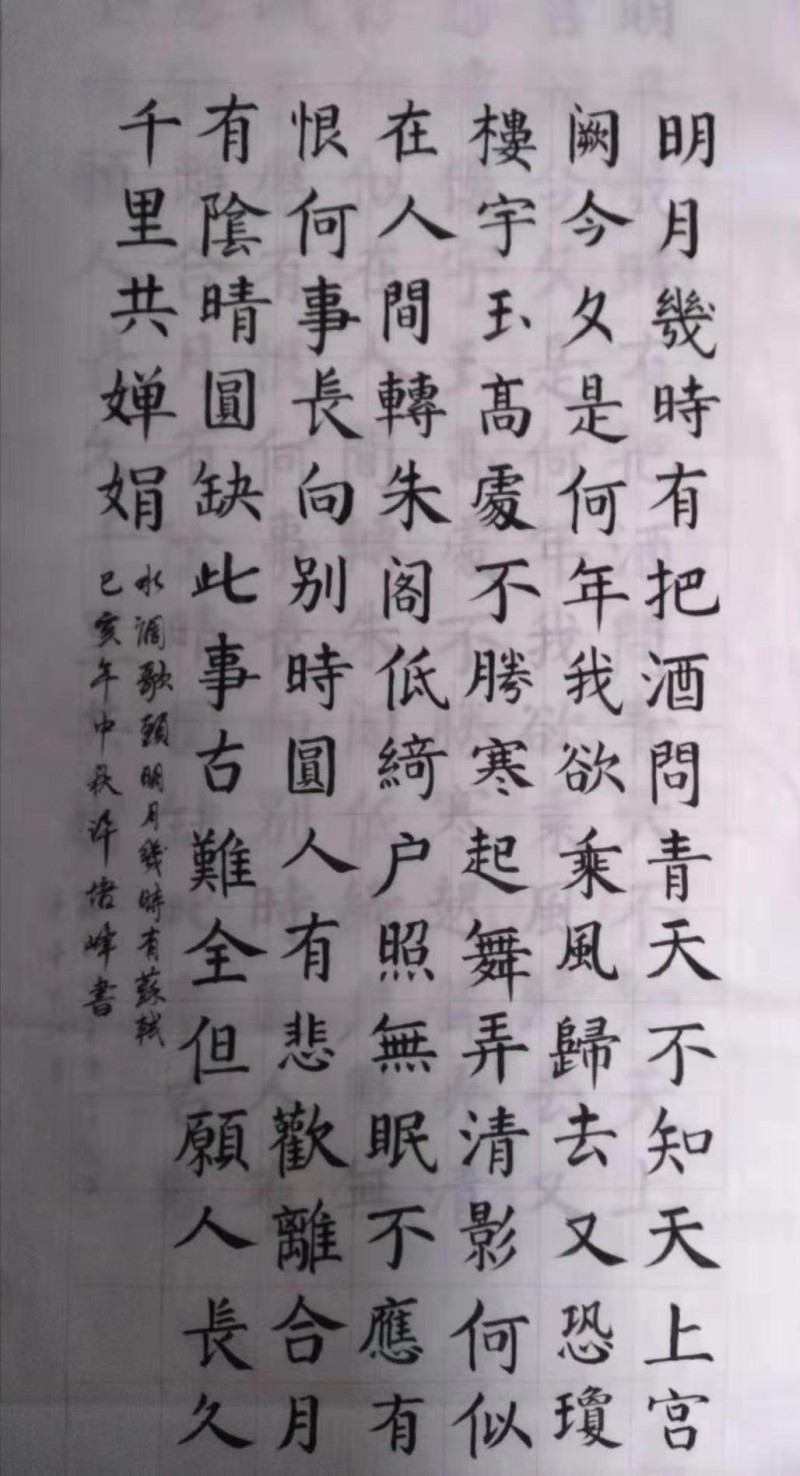 明月幾時有把酒問青天不知天上宮
闕今夕是何年我欲乘風歸去又恐瓊
樓宇玉高處不勝寒起舞弄清影何似
在人間轉朱阁低綺户照無眠不應有
恨何事長向别時圓人有悲歡離合月
有陰晴圓缺此事古難全但願人長久
千里共婵娟
水調歌頭明月幾時有蘇軾
己亥年中秋許峰書